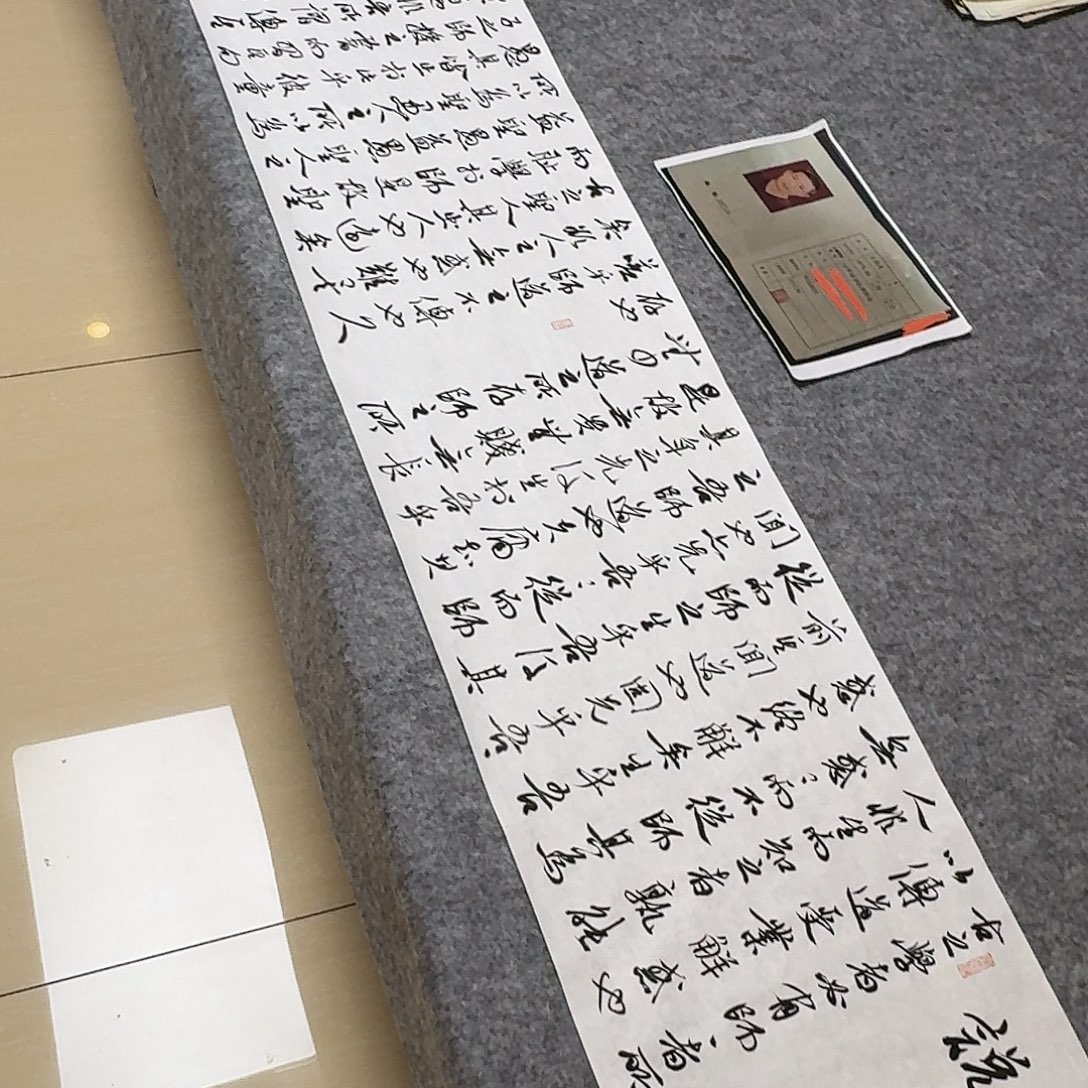 説
古之學者必有師〻者所
以傳道受業解惑也
人非生而知之者孰能
無惑〻而不從師其為
惑也終不解矣生乎吾
前其聞道也固先乎吾〻
從而師之生乎吾後其
聞也亦先乎吾〻從而師
之吾師道也夫庸知
其年之先後生於吾乎
是故無貴無賤無長
無少道之所存師之所
存也
嗟乎師道之不傳也久
矣人之無惑也難矣
古之聖人其出人也遠矣
而恥學於師是故聖
益聖愚益愚聖人之
所以為聖愚人之所以為
愚其皆出於此乎彼童
子之師授之書而習其句
非吾所謂傳其